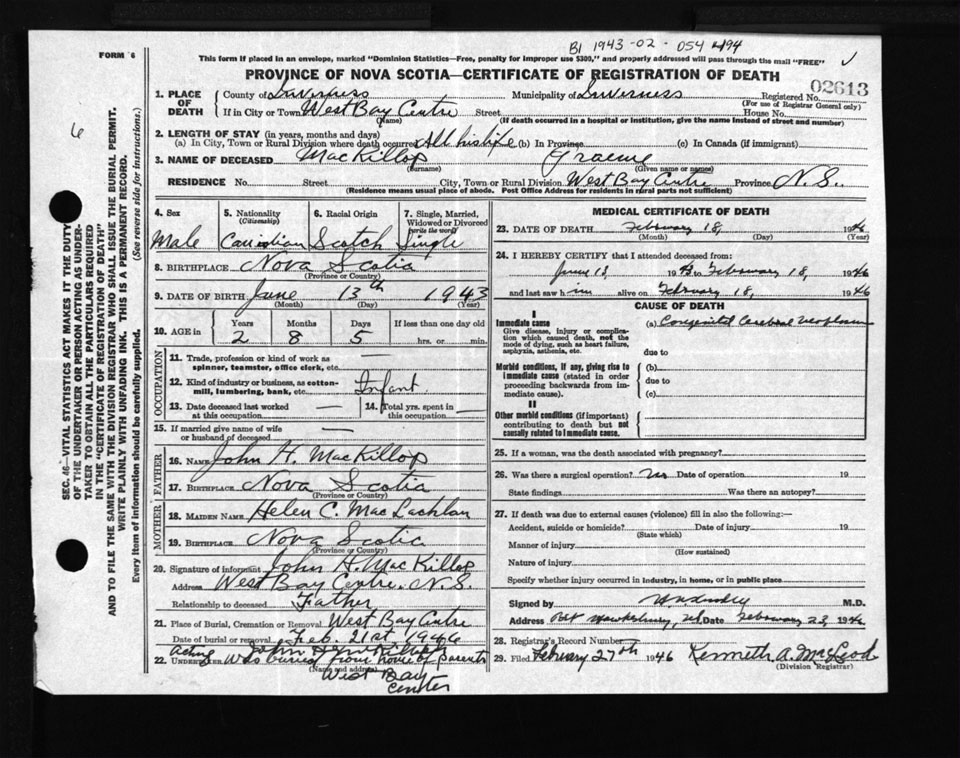 BI 1943-02-054494
FORM 6
This form if placed in an envelope, marked "Dominion Statistics—Free, penalty for improper use $300," and properly addressed will pass through the mail "FREE"
PROVINCE OF NOVA SCOTIA—CERTIFICATE OF REGISTRATION OF DEATH
02613
1. PLACE OF DEATH
County of Inverness Municipality of Inverness Registered No.
(For use of Registrar General only)
If in City or Town West Bay Centre Street House No.
(Name) (If death occurred in a hospital or institution, give the name instead of street and number)
2. LENGTH OF STAY (in years, months and days)
(a) In City, Town or Rural Division where death occurred All his life (b) In Province (c) In Canada (if immigrant)
3. NAME OF DECEASED MacKillop Graeme
(Surname) (Given name or names)
RESIDENCE No. Street City, Town or Rural Division West Bay Centre Province N.S.
(Residence means usual place of abode. Post Office Address for residents in rural parts not sufficient)
4. Sex 5. Nationality (Citizenship) 6. Racial Origin 7. Single, Married, Widowed or Divorced (write the word)
Male Canadian Scotch Single
8. BIRTHPLACE Nova Scotia
(Province or Country)
9. DATE OF BIRTH June 13th 1943
(Month) (Day) (Year)
10. AGE in Years Months Days If less than one day old
2 8 5 hrs. or min.
OCCUPATION
11. Trade, profession or kind of work as spinner, teamster, office clerk, etc. —
12. Kind of industry or business, as cotton-mill, lumbering, bank, etc. Infant
13. Date deceased last worked at this occupation — 14. Total yrs. spent in this occupation —
15. If married give name of wife or husband of deceased —
FATHER
16. NAME John H. MacKillop
17. BIRTHPLACE Nova Scotia
(Province or Country)
MOTHER
18. MAIDEN NAME Helen C. MacLachlan
19. BIRTHPLACE Nova Scotia
(Province or Country)
20. Signature of informant John H. MacKillop
Address West Bay Centre. N.S.
Relationship to deceased Father
21. Place of Burial, Cremation or Removal West Bay Centre
Date of burial or removal Feb. 21st 1946
Acting
22. UNDERTAKER Was buried from home of parents
(Name and address)
West Bay
Center
MEDICAL CERTIFICATE OF DEATH
23. DATE OF DEATH February 18, 1946
(Month) (Day) (Year)
24. I HEREBY CERTIFY that I attended deceased from:
June 13, 1943 to February 18, 1946
and last saw him alive on February 18, 1946
CAUSE OF DEATH
I
Immediate cause
Give disease, injury or complication which caused death, not the mode of dying, such as heart failure, asphyxia, asthenia, etc.
(a) Congenital Cerebral
due to
Morbid conditions, if any, giving rise to immediate cause (stated in order proceeding backwards from immediate cause).
(b)
due to
(c)
II
Other morbid conditions (if important) contributing to death but not causally related to immediate cause.
25. If a woman, was the death associated with pregnancy?
26. Was there a surgical operation? no Date of operation 19
State findings Was there an autopsy?
27. If death was due to external causes (violence) fill in also the following:—
Accident, suicide or homicide? Date of injury 19
(State which)
Manner of injury
(How sustained)
Nature of injury
Specify whether injury occurred in industry, in home, or in public place
Signed by M.D.
Address Port Hawkesbury, N.S. Date February 23, 1946
28. Registrar's Record Number
29. Filed February 27th 1946 Kenneth A. MacLeod
(Division Registrar)
6
SEC. 46—VITAL STATISTICS ACT MAKES IT THE DUTY
OF THE UNDERTAKER OR PERSON ACTING AS UNDER-
TAKER TO OBTAIN ALL THE PARTICULARS REQUIRED
IN THE "CERTIFICATE OF REGISTRATION OF DEATH"
AND TO FILE THE SAME WITH THE DIVISION REGISTRAR WHO SHALL ISSUE THE BURIAL PERMIT.
WRITE PLAINLY WITH UNFADING INK. THIS IS A PERMANENT RECORD.
Every item of information should be carefully supplied. (See reverse side for instructions.)